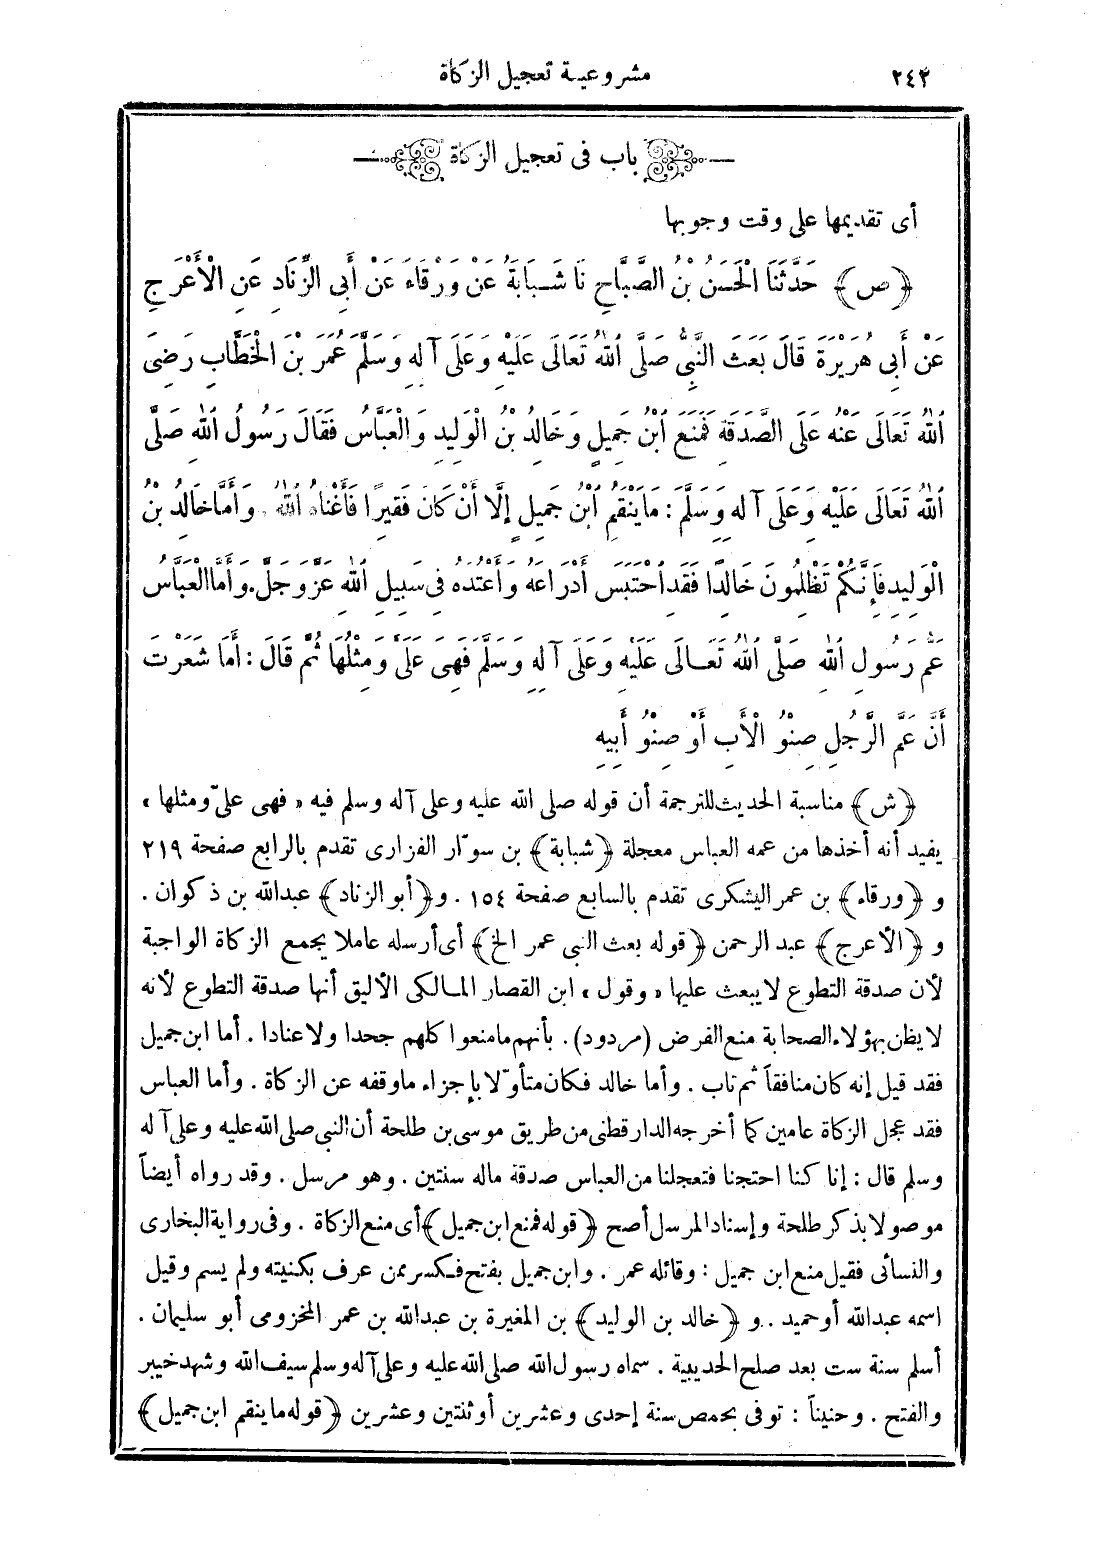 ٢٤٣ مشروعية تعجيل الزكاة
باب فى تعجيل الزكاة
أى تقديمها على وقت وجوبها
﴿ص﴾ حَدَّثَنَا الْحَسَنُ بْنُ الصَّبَّاحِ نَا شَبَابَةُ عَنْ وَرْقَاءَ عَنْ أَبِى الزِّنَادِ عَنِ الْأَعْرَجِ
عَنْ أَبِى هُرَيْرَةَ قَالَ بَعَثَ النَّبِىُّ صَلَّى اللهُ تَعَالَى عَلَيْهِ وَعَلَى آلِهِ وَسَلَّمَ عُمَرَ بْنَ الْخَطَّابِ رَضِىَ
اللهُ تَعَالَى عَنْهُ عَلَى الصَّدَقَةِ فَمَنَعَ ابْنُ جَمِيلٍ وَخَالِدُ بْنُ الْوَلِيدِ وَالْعَبَّاسُ فَقَالَ رَسُولُ اللهِ صَلَّى
اللهُ تَعَالَى عَلَيْهِ وَعَلَى آلِهِ وَسَلَّمَ : مَا يَنْقِمُ ابْنُ جَمِيلٍ إِلَّا أَنْ كَانَ فَقِيرًا فَأَغْنَاهُ اللهُ . وَأَمَّا خَالِدُ بْنُ
الْوَلِيدِ فَإِنَّكُمْ تَظْلِمُونَ خَالِدًا فَقَدِ احْتَبَسَ أَدْرَاعَهُ وَأَعْتُدَهُ فِى سَبِيلِ اللهِ عَزَّ وَجَلَّ. وَأَمَّا الْعَبَّاسُ
عَمُّ رَسُولِ اللهِ صَلَّى اللهُ تَعَالَى عَلَيْهِ وَعَلَى آلِهِ وَسَلَّمَ فَهِىَ عَلَىَّ وَمِثْلُهَا ثُمَّ قَالَ : أَمَا شَعَرْتَ
أَنَّ عَمَّ الرَّجُلِ صِنْوُ الْأَبِ أَوْ صِنْوُ أَبِيهِ
﴿ش﴾ مناسبة الحديث للترجمة أن قوله صلى الله عليه وعلى آله وسلم فيه « فهى علىّ ومثلها »
يفيد أنه أخذها من عمه العباس معجلة ﴿شبابة﴾ بن سوّار الفزارى تقدم بالرابع صفحة ٢١٩
و ﴿ورقاء﴾ بن عمر اليشكرى تقدم بالسابع صفحة ١٥٤ . و﴿أبو الزناد﴾ عبدالله بن ذكوان .
و ﴿الأعرج﴾ عبد الرحمن ﴿قوله بعث النبى عمر الخ﴾ أى أرسله عاملا يجمع الزكاة الواجبة
لأن صدقة التطوع لا يبعث عليها « وقول » ابن القصار المالكى الأليق أنها صدقة التطوع لأنه
لا يظن بهؤلاء الصحابة منع الفرض (مردود). بأنهم ما منعوا كلهم جحدا ولا عنادا . أما ابن جميل
فقد قيل إنه كان منافقاً ثم تاب . وأما خالد فكان متأوّلا بإجزاء ما وقفه عن الزكاة . وأما العباس
فقد عجل الزكاة عامين كما أخرجه الدارقطنى من طريق موسى بن طلحة أن النبى صلى الله عليه وعلى آله
وسلم قال : إنا كنا احتجنا فتعجلنا من العباس صدقة ماله سنتين . وهو مرسل . وقد رواه أيضاً
موصولا بذكر طلحة وإسناد المرسل أصح ﴿قوله فمنع ابن جميل﴾ أى منع الزكاة . وفى رواية البخارى
والنسائى فقيل منع ابن جميل : وقائله عمر . وابن جميل بفتح فكسر ممن عرف بكنيته ولم يسم وقيل
اسمه عبدالله أو حميد .. و ﴿خالد بن الوليد﴾ بن المغيرة بن عبدالله بن عمر المخزومى أبو سليمان .
أسلم سنة ست بعد صلح الحديبية . سماه رسول الله صلى الله عليه وعلى آله وسلم سيف الله وشهد خيبر
والفتح . وحنيناً : توفى بحمص سنة إحدى وعشرين أو ثنتين وعشرين ﴿قوله ما ينقم ابن جميل﴾